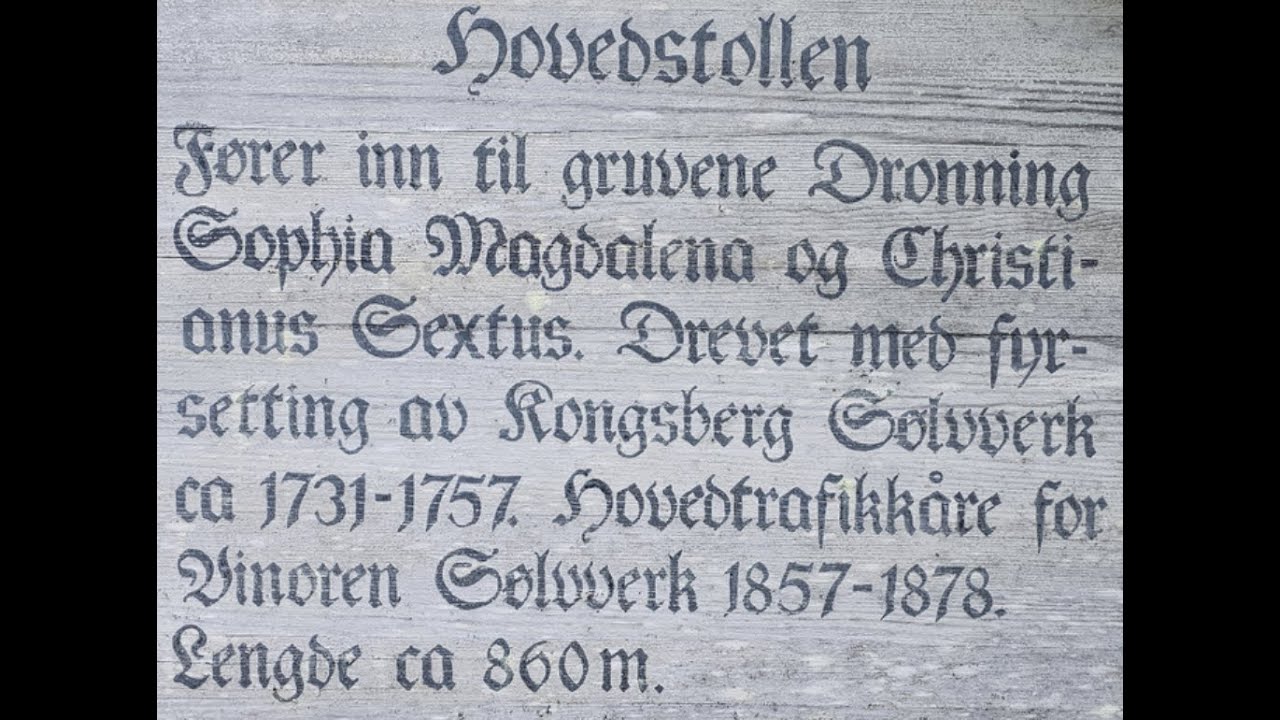 Hovedstollen
Fører inn til gruvene Dronning
Sophia Magdalena og Christi-
anus Sextus. Drevet med fyr-
setting av Kongsberg Sølvverk
ca 1731-1757. Hovedtrafikkåre for
Vinoren Sølvverk 1857-1878.
Lengde ca 860m.